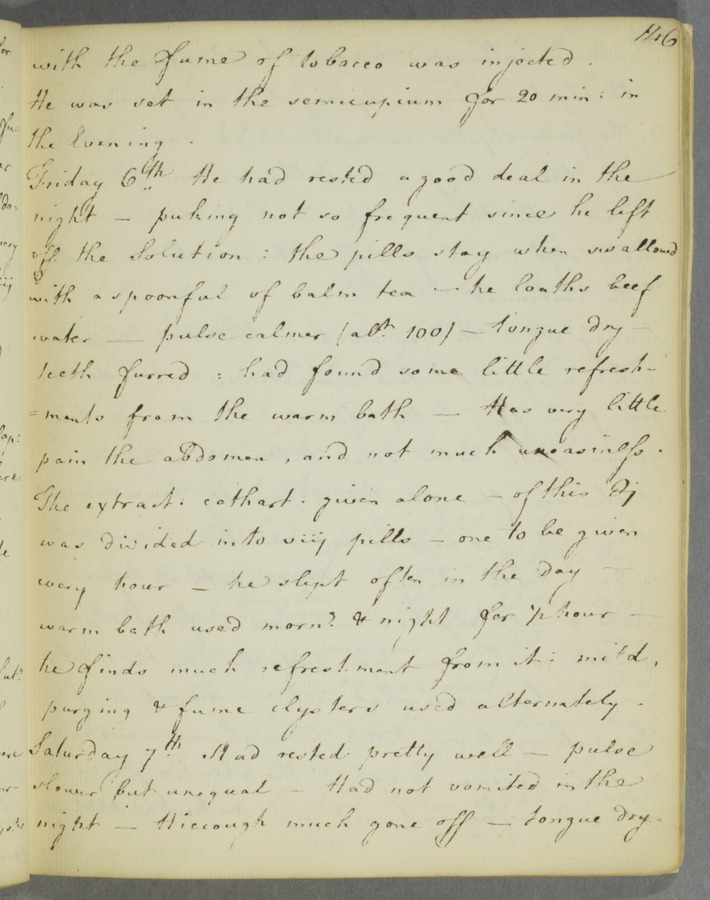 146
with the fume of tobacco was injected.
He was set in the semicupium for 20 min: in
the Evening.
Friday 6th. He had rested a good deal in the
night — puking not so frequent since he left
off the Solution: the pills stay when swallowed
with a spoonful of balm tea — he loaths beef
water — pulse calmer (abt. 100) — tongue dry —
teeth furred: had found some little refresh-
=ments from the warm bath — Has very little
pain the abdomen, and not much uneasiness.
The extract: cathart: given alone — of this ʒj
was divided into viij pills — one to be given
every hour — he slept often in the day —
warm bath used morng. & night for ½ hour —
he finds much refreshment from it: mild,
purging & fume clysters used alternately.
Saturday 7th. Had rested pretty well — pulse
slower but unequal — Had not vomited in the
night — Hiccough much gone off — tongue dry-